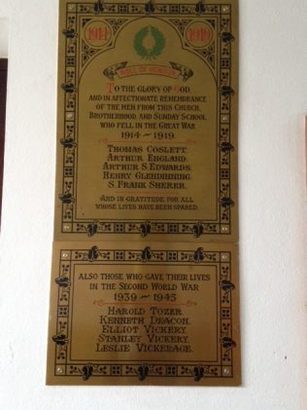 1914
1919
ROLL OF HONOUR
TO THE GLORY OF GOD
AND IN AFFECTIONATE REMEMBRANCE
OF THE MEN FROM THIS CHURCH,
BROTHERHOOD, AND SUNDAY SCHOOL
WHO FELL IN THE GREAT WAR
1914 — 1919
THOMAS COSLETT.
ARTHUR ENGLAND.
ARTHUR S. EDWARDS.
HENRY GLENDINNING.
S. FRANK SHERER.
AND IN GRATITUDE FOR ALL
WHOSE LIVES HAVE BEEN SPARED
ALSO THOSE WHO GAVE THEIR LIVES
IN THE SECOND WORLD WAR
1939 — 1945
HAROLD TOZER.
KENNETH DEACON.
ELLIOT VICKERY.
STANLEY VICKERY.
LESLIE VICKERAGE.